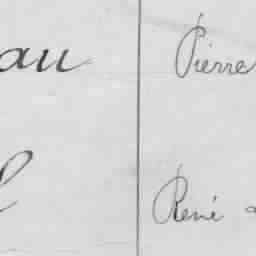 au Pierre
René